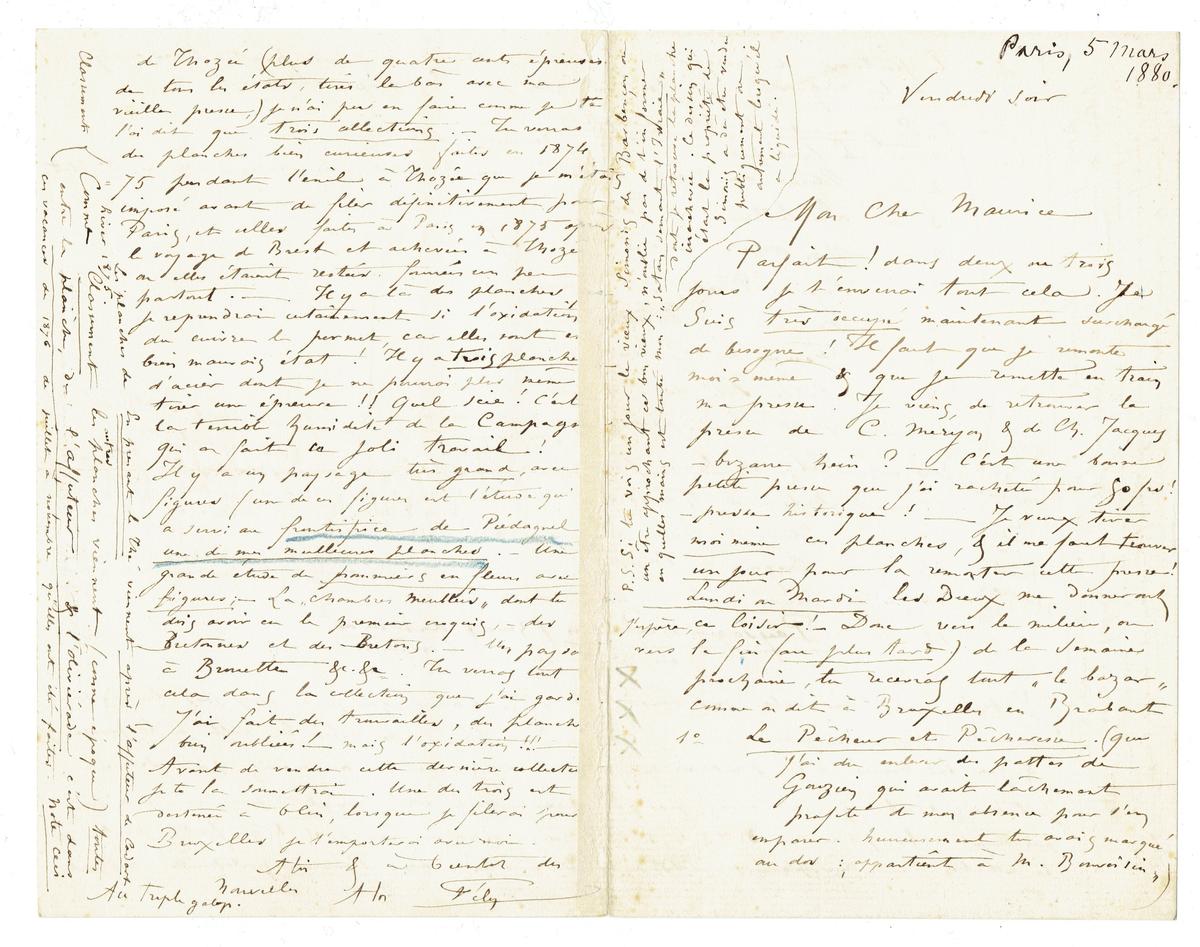 Paris, 5 Mars
1880.
Vendredi soir
Mon Cher Maurice
Parfait ! dans deux ou trois
jours je t'enverrai tout cela. Je
suis très occupé maintenant surchargé
de besogne ! Il faut que je remonte
moi-même & que je remette en train
ma presse. Je viens de retrouver la
presse de C. Meryon & de Ch. Jacques
– bizarre hein ? – C'est une bonne
petite presse que j'ai racheté pour 90 frs !
– presse historique ! — Je veux tirer
moi même ces planches, & il me faut trouver
un jour pour la remonter cette presse !
Lundi ou Mardi les Dieux me donneront
j'espère, ce loisir ! – Donc vers le milieu, ou
vers la fin (au plus tard) de la semaine
prochaine, tu recevras tout „le bazar„
comme on dit à Bruxelles en Brabant
1º Le Pêcheur et Pêcheresse. (que
j'ai du enlever des pattes de
Gouzien qui avait lâchement
profité de mon absence pour s'en
emparer. heureusement tu avais marqué
au dos : „appartient à M. Bonvoisin„)
de Thozée (plus de quatre cents épreuves
de tous les états, tirés là bas avec ma
vieille presse,) je n'ai pu en faire comme je te
l'ai dit que trois collections. – Tu verras
des planches bien curieuses faites en 1874
75 pendant l'exil à Thozée que je m'étais
imposé avant de filer définitivement pour
Paris, et celles faites à Paris en 1875 après
le voyage de Brest et achevées à Thozée
ou elles étaient restées. fourrées un peu
partout. — Il y a là des planches
je reprendrai certainement si l'oxidation
du cuivre le permet, car elles sont en
bien mauvais état ! Il y a trois planches
d'acier dont je ne pourrai plus même
tirer une épreuve !! Quel scie ! C'est
la terrible humidité de la Campagne
qui a fait ce joli travail !
Il y a un paysage très grand, avec
figures (une de ces figures est l'étude qui
a servi au frontispice de Piédagnel
une de mes meilleures planches. – Une
grande étude de pommiers en fleurs avec
figures ; – La „chambres meublées„ dont tu
dois avoir eu le premier croquis, – des
Bretonnes et des Bretons. –
à &.&. Tu verras tout
cela dans la collection que j'ai gardé.
J'ai fait des trouvailles, des planches
bien oubliées ! mais l'oxidation !!!
Avant de vendre cette dernière collection
je te la soumettrai. Une des trois est
destinée à Olin, lorsque je filerai pour
Bruxelles je l'emporterai avec moi.
A toi & à bientôt des
Nouvelles A toi Fély
Au triple galop.
P.S. Si tu vois un jour le vieux Simonis de Barbançon ou
un être approchant ce bon vieux, n'oublie pas de t'informer
en quelles mains est tombé mon : „Satan semant l'Ivraie„
dont je retrouve la planche
inachevée. Ce dessin qui
était la propriété de
Simonis a du être vendu
publiquement ou
autrement lorsqu'il
a liquidé.
Classement (Comme Classement les autres planches viennent (comme époque) toutes
entre la planche, de : l'affuteur. & l'Oliviérade c'est dans
les planches de En prenant le Thé viennent après l'affuteur de Cadart
hiver 1875
en vacances de 1876 de juillet à novembre qu'elles ont été faites. Note ceci